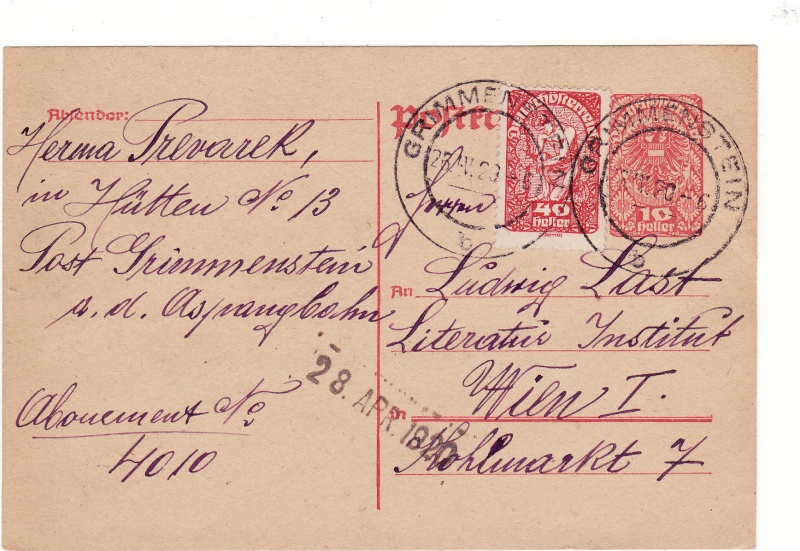 Absender:
Herma Prevarek,
in Hütten No 13
Post Grimmenstein
a. d. Aspangbahn
Abonement No
4010
Postkarte
GRIMMENSTEIN
b
Deutschösterreich
40
Heller
GRIMMENSTEIN
b
10
Heller
Herrn
An Ludwig Last
Literatur Institut
Wien I.
in
Kohlmarkt 7
28. APR. 1920